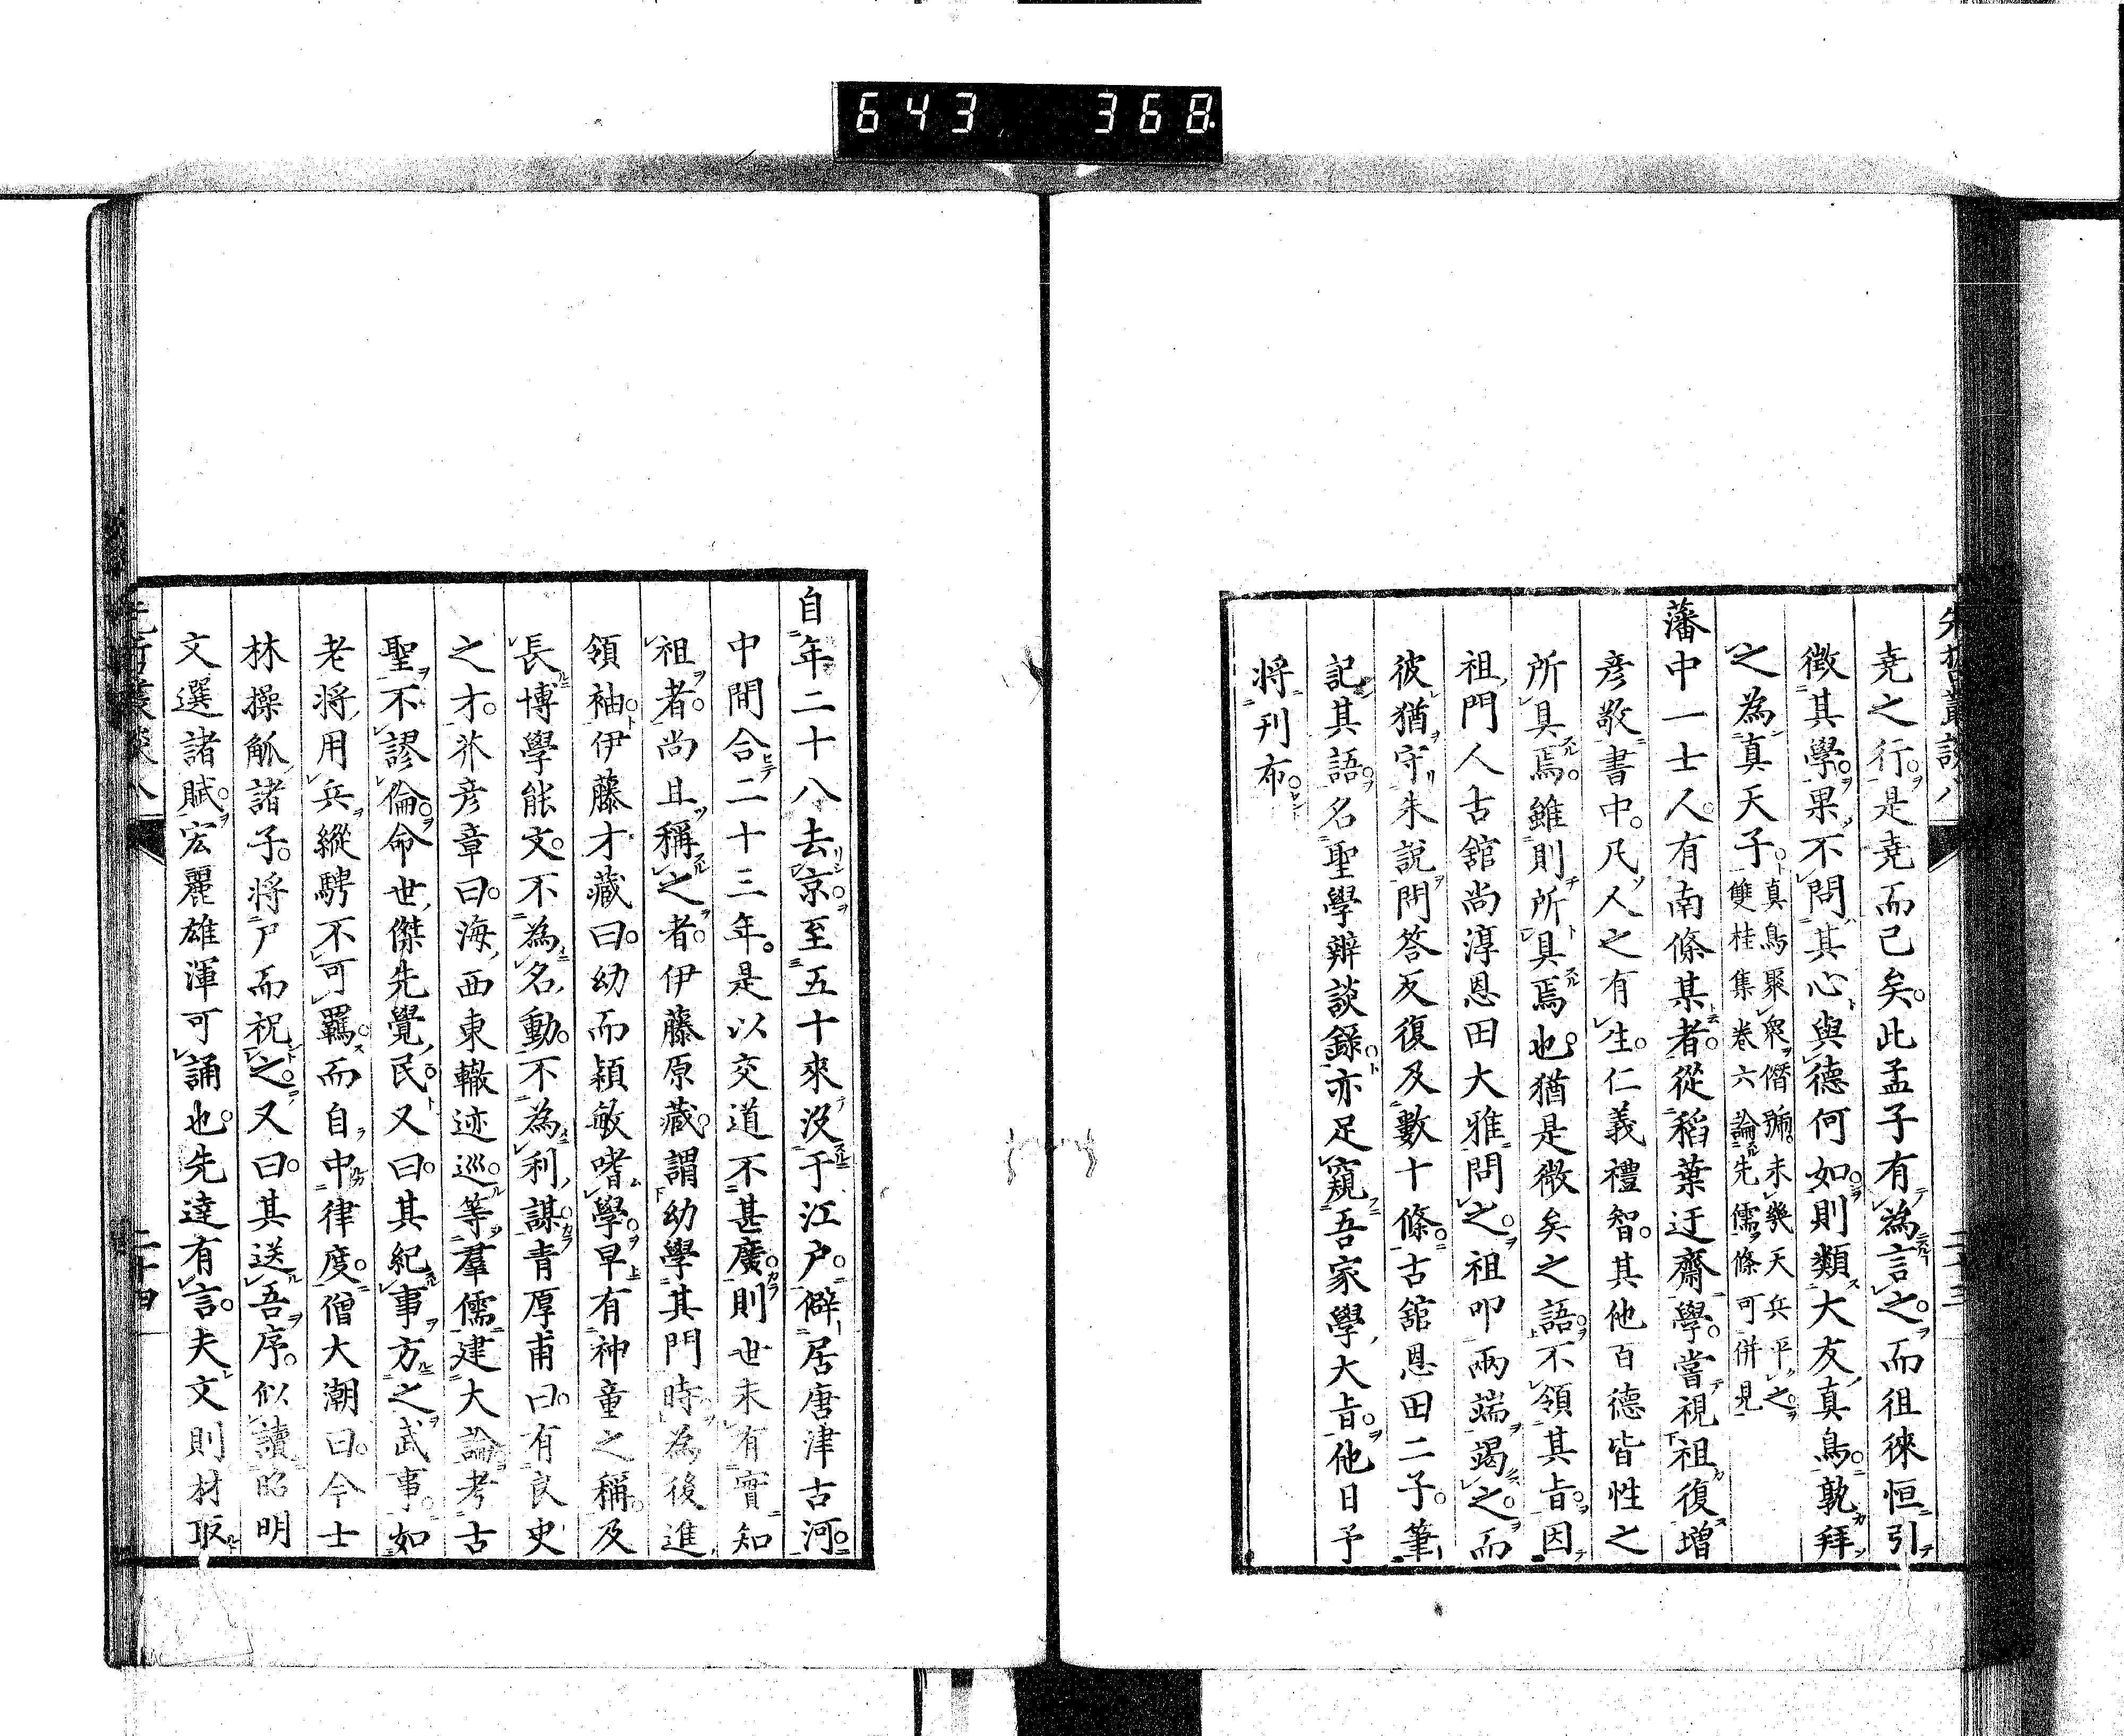 643 368
先哲叢談八
二十三
堯之行是堯而己矣此孟子有為言之而徂徠恒引
徴其學果不問其心與德何如則類大友真鳥孰拜
之為真天子真鳥聚衆僭號未幾天兵平之
雙桂集卷六論先儒條可併見
藩中一士人有南條某者從稻葉迂齋學當視祖復增
彦敬書中凡人之有生仁義禮智其他百德皆性之
所具焉雖則所具焉也猶是微矣之語不領其旨因
祖門人古舘尚淳恩田大雅問之祖叩兩端竭之而
彼猶守朱說問答反復及數十條古舘恩田二子筆
記其語名聖學辨談錄亦足窺吾家學大旨他日予
将刊布
自年二十八去京至五十來没于江户僻居唐津古河
中間合二十三年是以交道不甚廣則世未有實知
祖者尚且稱之者伊藤原藏謂幼學其門時為後進
領袖伊藤才藏曰幼而穎敏嗜學早有神童之稱及
長博學能文不為名動不為利謀青厚甫曰有良史
之才芥彦章曰海西東轍迹巡等羣儒建大論考古
聖不謬倫命世傑先覺民又曰其紀事方之武事如
老将用兵縱騁不可羈而自中律度僧大潮曰今士
林操觚諸子将尸而祝之又曰其送吾序似讀昭明
文選諸賦宏麗雄渾可誦也先達有言夫文則材取
先哲叢談八
二十四